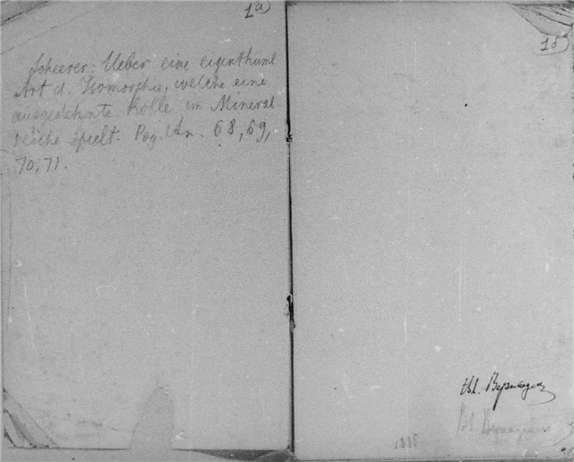 1a
Scheerer: Ueber eine eigenthüml
Art d. Isomorphie, welche eine
ausgedehnte Rolle im Mineral
reiche spielt. Pog. An. 68, 69,
70, 71.
1б
Вл. Вернадск
Вл. Вернадск